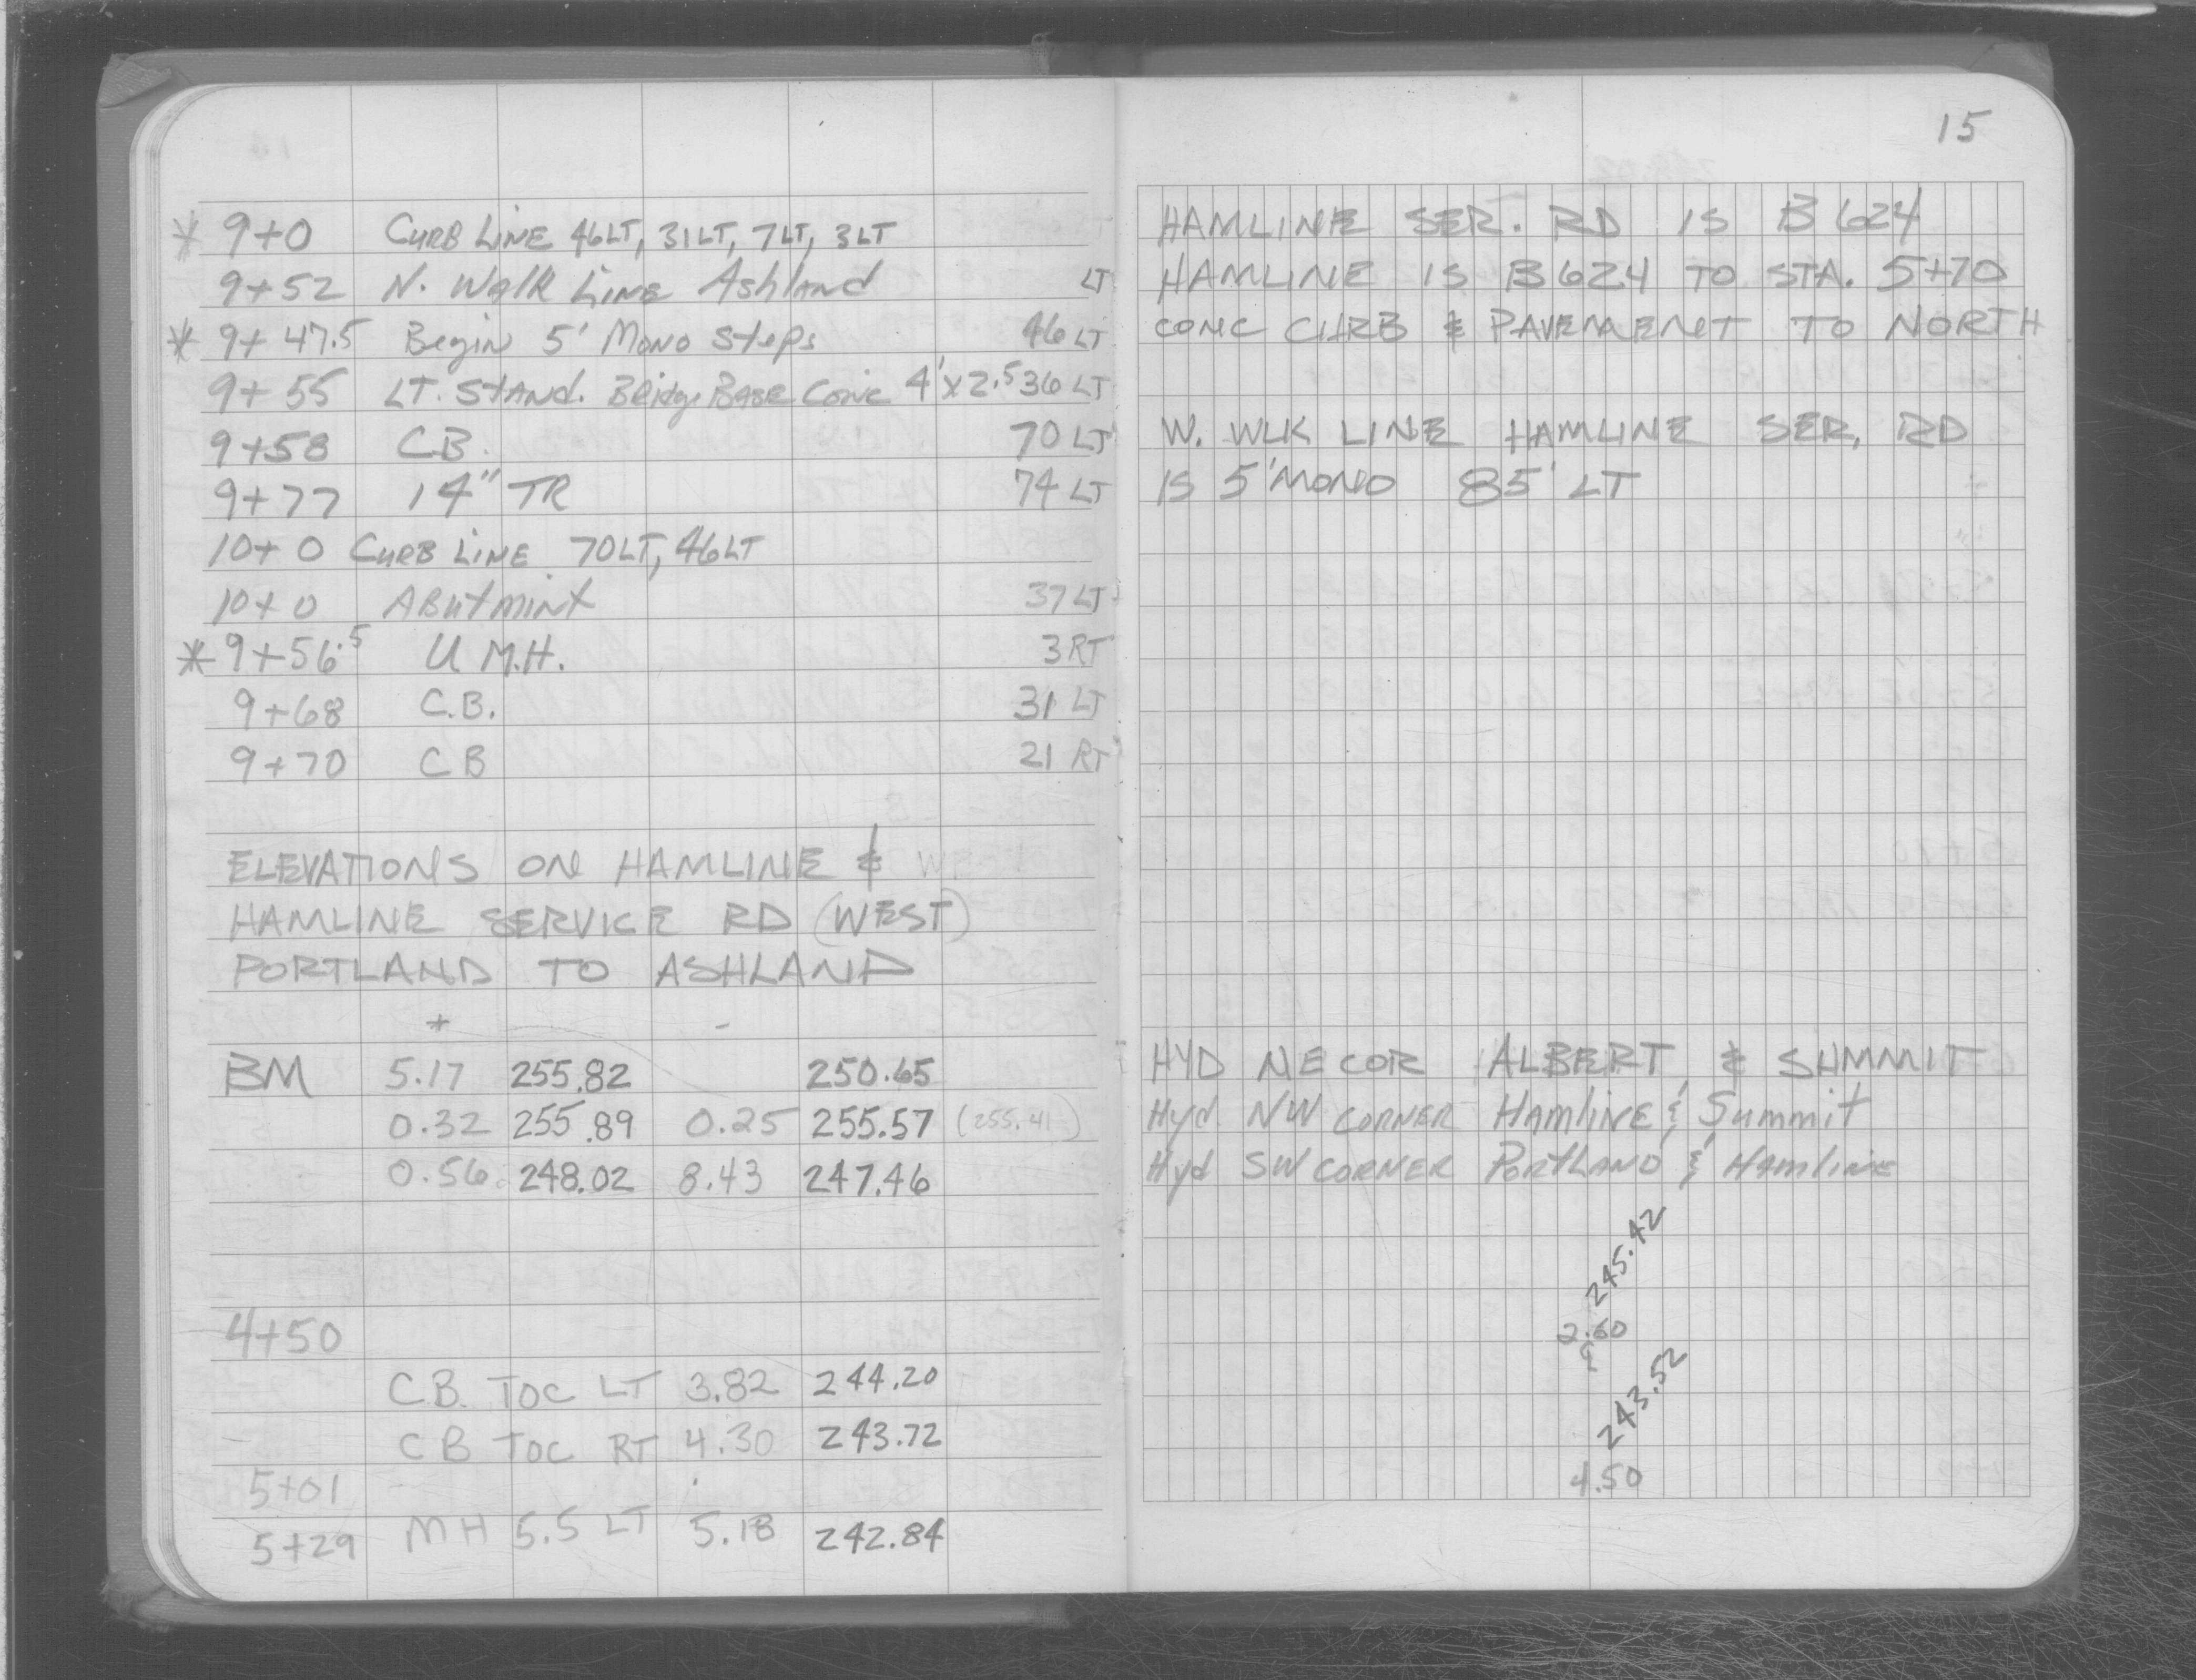 * 9+0 CURB LINE 46LT, 31LT, 7LT, 3LT
9+52 N. Walk LINE Ashland LT
* 9+47.5 Begin 5' MONO Steps 46 LT
9+55 LT. STAND. Bridge Base Conc 4'x2.5 36 LT
9+58 C.B. 70 LT
9+77 14" TR 74 LT
10+0 CURB LINE 70LT, 46LT
10+0 ABUTMINT 37 LT
* 9+56.5 U M.H. 3 RT
9+68 C.B. 31 LT
9+70 CB 21 RT
ELEVATIONS ON HAMLINE &
HAMLINE SERVICE RD (WEST)
PORTLAND TO ASHLAND
+ -
BM 5.17 255.82 250.65
0.32 255.89 0.25 255.57 (255.41)
0.56 248.02 8.43 247.46
4+50
C.B. TOC LT 3.82 244.20
CB TOC RT 4.30 243.72
5+01
5+29 MH 5.5 LT 5.18 242.84
15
HAMLINE SER. RD IS B624
HAMLINE IS B624 TO STA. 5+70
CONC CURB & PAVEMENET TO NORTH
W. WLK LINE HAMLINE SER. RD
IS 5' MONO 85' LT
HYD NE COR ALBERT & SUMMIT
Hyd NW CORNER HAMLINE & Summit
Hyd SW CORNER PORTLAND & HAMLINE
245.42
2.60
243.52
4.50